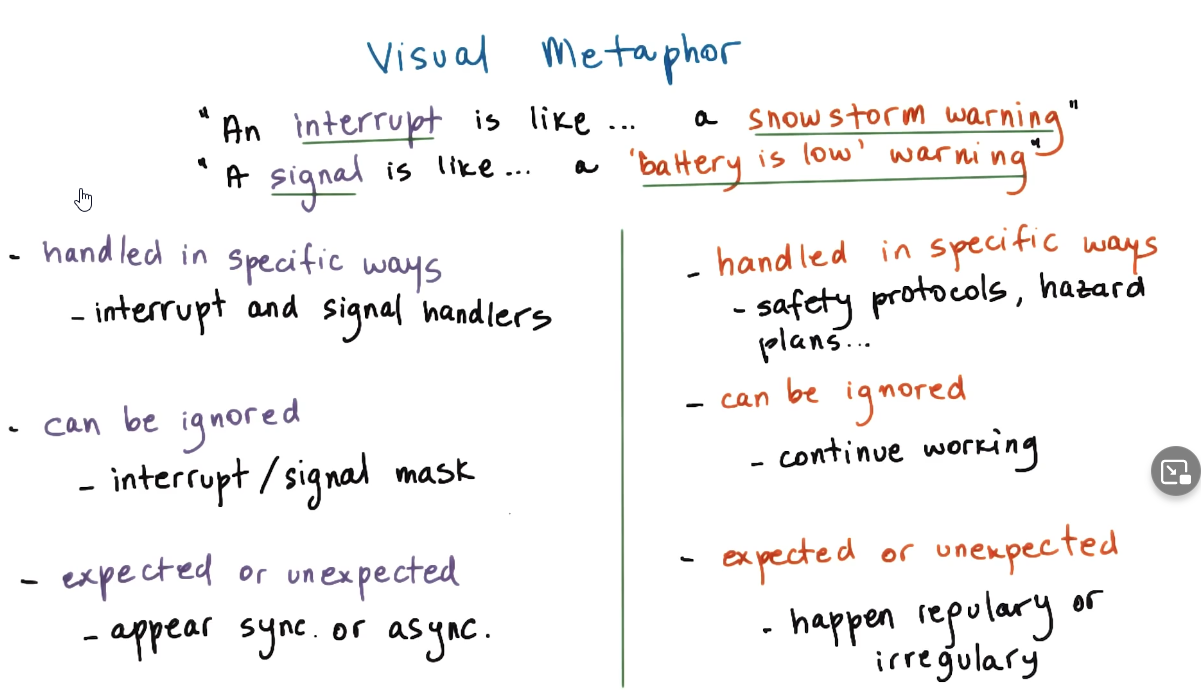 Visual Metaphor
"An interrupt is like... a snowstorm warning"
"A signal is like... a 'battery is low' warning"
- handled in specific ways
- interrupt and signal handlers
- can be ignored
- interrupt/signal mask
- expected or unexpected
- appear sync. or async.
- handled in specific ways
- safety protocols, hazard
plans...
- can be ignored
- continue working
- expected or unexpected
- happen repulary or
irregulary